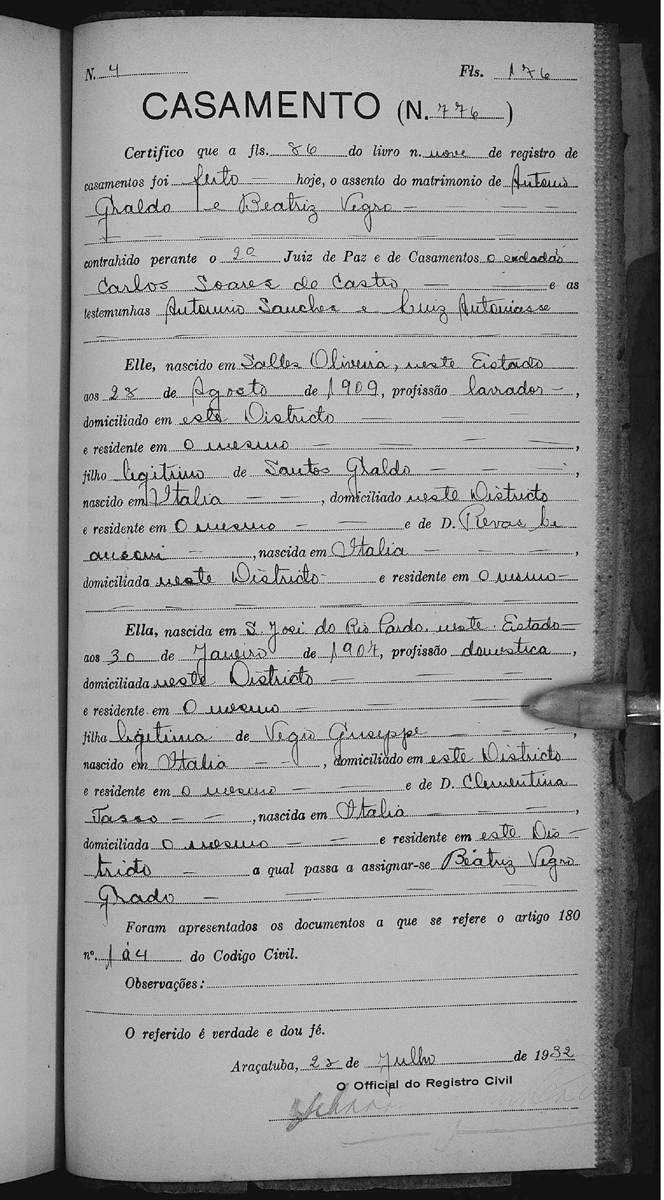 N. 4 Fls. 176
CASAMENTO (N. 776)
Certifico que a fls. 86 do livro n. nove de registro de
casamentos foi feito — hoje, o assento do matrimonio de Antonio
Ghaldo e Beatriz Vegro — — — —
contrahido perante o 2º Juiz de Paz e de Casamentos o cidadão
Carlos Soares de Castro — — e as
testemunhas Antonio Sanches e Luiz
Elle, nascido em Salles Oliveira, neste Estado
aos 28 de Agosto de 1909, profissão lavrador —,
domiciliado em este Districto — — — —
e residente em o mesmo — — — —,
filho legitimo de Santos Ghaldo — — — —,
nascido em Italia — —, domiciliado neste Districto
e residente em O mesmo — — e de D.
—, nascida em Italia — — — —,
domiciliada neste Districto — e residente em o mesmo —
— — — — — —
Ella, nascida em S. José do Rio Pardo, neste Estado —
aos 30 de Janeiro de 1904, profissão domestica,
domiciliada neste Districto — — — —
e residente em O mesmo — — — —
filha legitima de Vegro Giuseppe — — —,
nascido em Italia — —, domiciliado em este Districto
e residente em o mesmo — — e de D. Clementina
Tasso —, nascida em Italia — — —,
domiciliada o mesmo — — e residente em este Dis-
tricto — — a qual passa a assignar-se Beatriz Vegro
Ghaldo — — — — —
Foram apresentados os documentos a que se refere o artigo 180
nº. 1 á 4 do Codigo Civil.
Observações:
O referido é verdade e dou fé.
Araçatuba, 23 de Julho de 1932
O Official do Registro Civil